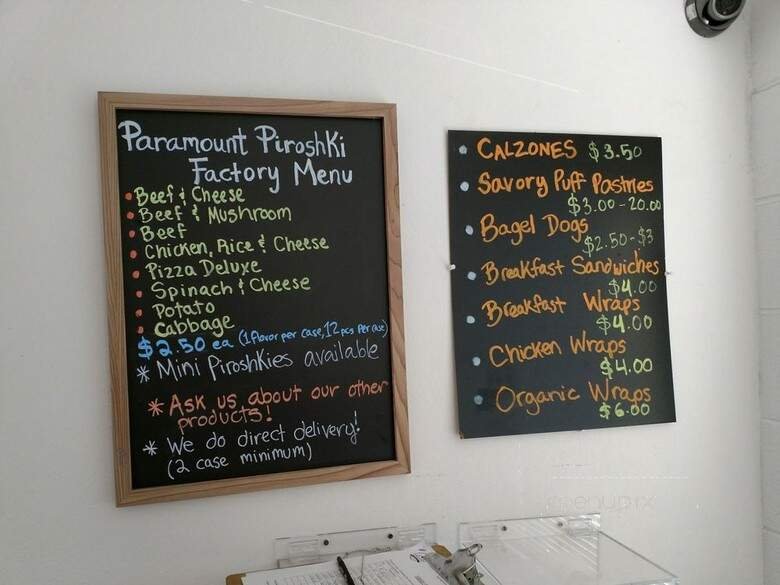 Paramount Piroshki
Factory Menu
• Beef & Cheese
• Beef & Mushroom
• Beef
• Chicken, Rice & Cheese
• Pizza Deluxe
• Spinach & Cheese
• Potato
• Cabbage
$2.50 ea (1 flavor per case, 12 pcs per case)
* Mini Piroshkies available
* Ask us about our other
products!
* We do direct delivery!
(2 case minimum)
• CALZONES $3.50
• Savory Puff Pastries
$3.00-20.00
• Bagel Dogs
$2.50-$3
• Breakfast Sandwiches
$4.00
• Breakfast Wraps
$4.00
• Chicken Wraps
$4.00
• Organic Wraps
$6.00